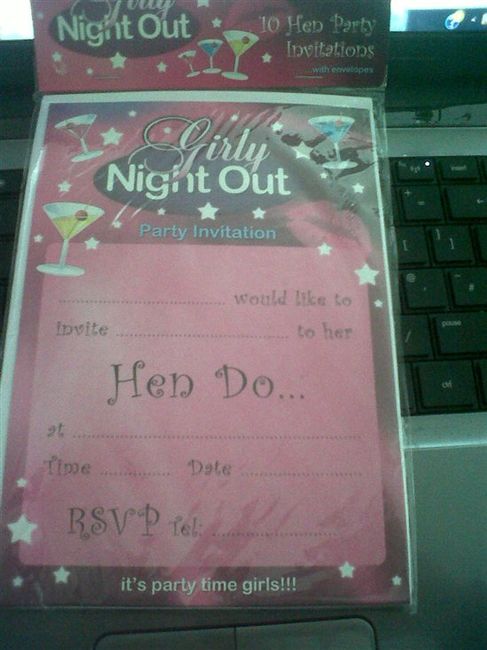 Girly
Night Out
10 Hen Party
Invitations
....with envelopes
Girly
Night Out
Party Invitation
.............................. would like to
invite .............................. to her
Hen Do...
at ..................................................
Time ............. Date ......................
RSVP Tel: ......................
it's party time girls!!!
pause
ctrl